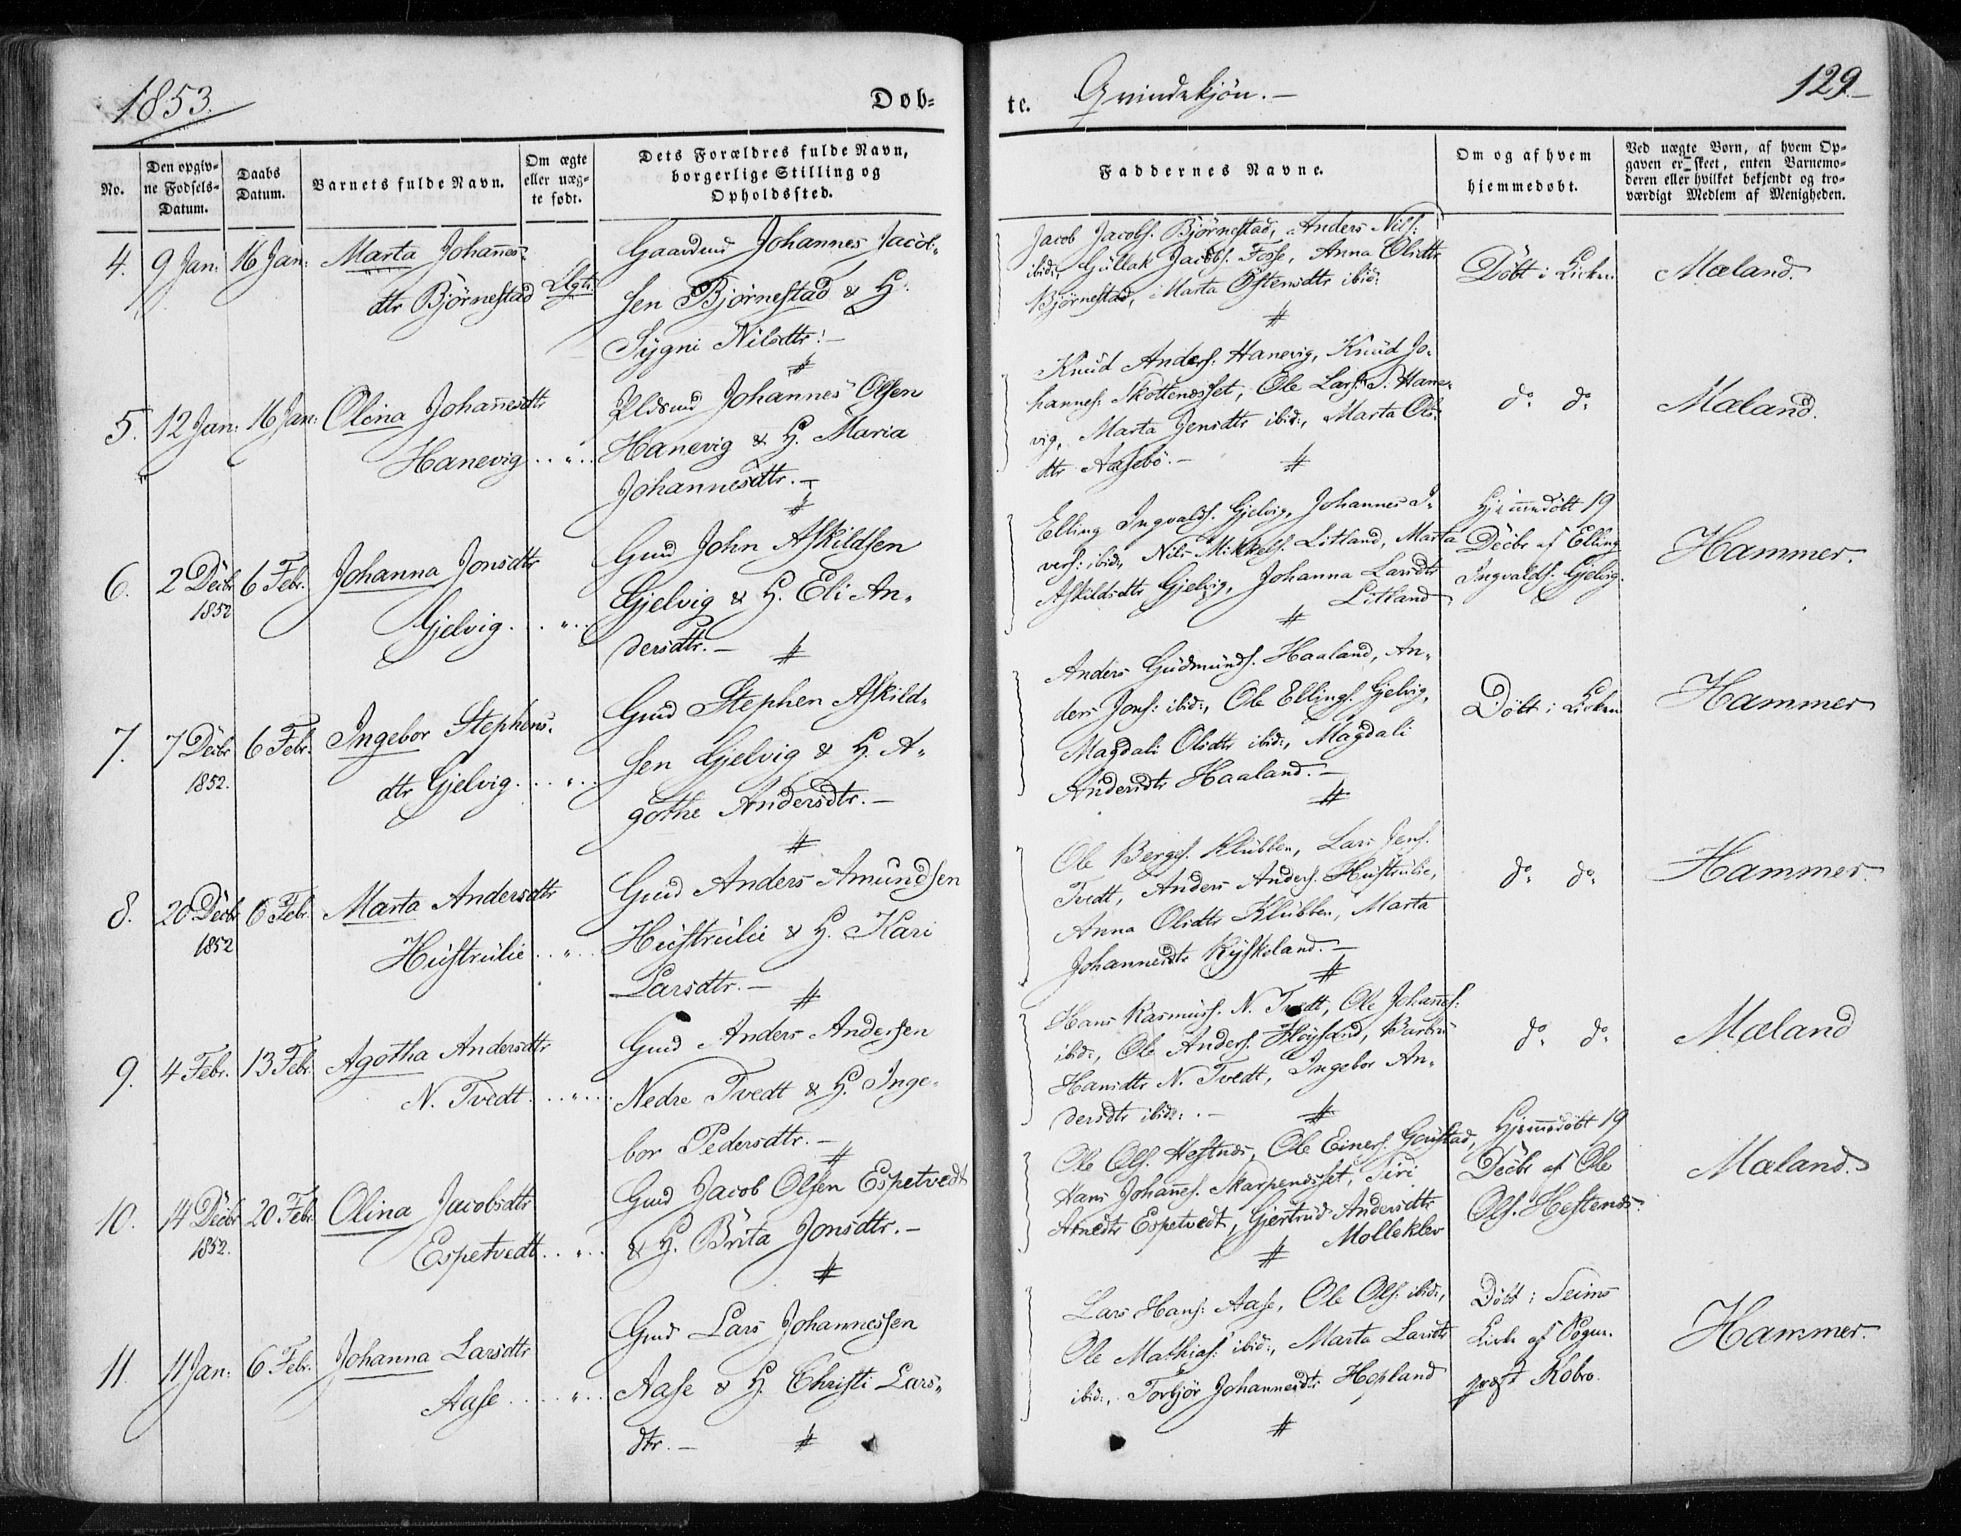 1853.
Døb-
te.
Qvindekjön.-
129.-
No.
Den opgiv-
ne Fødsels-
Datum.
Daabs
Datum.
Barnets fulde Navn.
Om ægte
eller uæg-
te født.
Dets Forældres fulde Navn,
borgerlige Stilling og
Opholdssted.
Faddernes Navne.
Om og af hvem
hjemmedøbt.
Ved uægte Børn, af hvem Op-
gaven er skeet, enten Barnemo-
deren eller hvilket bekjendt og tro-
værdigt Medlem af Menigheden.
4. 9 Jan: 16 Jan: Marta Johannes-
dtr Björnestad Ægte
Gaardmd Johannes Jacob-
sen Björnestad & H.
Sygni Nilsdtr:-
Jacob Jacobs. Björnestad, Anders Nils:
ibid:, Gullak Jacobs. Fosse, Anna Olsdtr
Björnestad, Marta Östensdtr ibid:
Döbt i Kirken
Mæland.
5. 12 Jan: 16 Jan: Olina Johannesdtr
Hanevig . . " . .
Pldsmd Johannes Olsen
Hanevig & H. Maria
Johannesdtr.-
Knud Anders. Hanevig, Knud Jo-
hannes. Skottenesset, Ole Lars. S. Hane-
vig, Marta Jensdtr ibid:, Marta Ols-
dtr Aasebö.-
do do
Mæland.
6. 2 Decbr 1852 6 Febr. Johanna Jonsdtr
Gjelvig . . . " . . .
Gmd John Askildsen
Gjelvig & H. Eli An-
dersdtr.-
Elling Ingvalds. Gjelvig, Johannes I-
vers: ibid:, Nils Mikkels. Litland, Marta
Askildsdtr Gjelvig, Johanna Larsdtr
Litland
Hjemmedöbt 19
Decbr af Elling
Ingvalds. Gjelvig.
Hammer.
7. 7 Decbr 1852. 6 Febr. Ingebor Stephens-
dtr Gjelvig . . . " . . .
Gmd Stephen Askild-
sen Gjelvig & H. A-
gothe Andersdtr.-
Anders Gudmunds. Haaland, An-
ders Jons: ibid:, Ole Ellings. Gjelvig,
Magdali Olsdtr ibid:, Magdali
Andersdtr Haaland.-
Döbt i Kirken
Hammer
8. 20 Decbr 1852 6 Febr. Marta Andersdtr
Hustrulie . . " . . .
Gmd Anders Amundsen
Hustrulie & H. Kari
Larsdtr.-
Ole Berges. Klubben, Lars Jens.
Tvedt, Anders Anders. Hustrulie,
Anna Olsdtr Klubben, Marta
Johannesdtr Ryskeland.-
do do
Hammer
9. 4 Febr. 13 Febr. Agotha Andersdtr
N. Tvedt . . . " . . .
Gmd Anders Andersen
Nedre Tvedt & H. Inge-
bor Pedersdtr.-
Hans Rasmus. N. Tvedt, Ole Johannes:
ibid:, Ole Anders. Röysund,
Hansdtr N. Tvedt, Ingebor An-
dersdtr ibid:.-
do do
Mæland
10. 14 Decbr 1852. 20 Febr. Olina Jacobsdtr
Espetvedt . . " . .
Gmd Jacob Olsen Espetvedt
& H. Brita Jonsdtr.-
Ole Ols. Hestnes, Ole Einers.
Hans Johannes. Skarpenesset, Siri
Arnedtr Espetvedt, Gjertrud Andersdtr
Mölleklev
Hjemmedöbt 19
Decbr af Ole
Ols. Hestenes.
Mæland.
11. 11 Jan: 6 Febr. Johanna Larsdtr
Aase . . . " . . .
Gmd Lars Johannessen
Aase & H. Christi Lars-
dtr.-
Lars Hans: Aase, Ole Ols. ibid:,
Ole Mathias: ibid:, Marta Larsdtr
ibid:, Torbjör Johannesdtr Hopland
Döbt i Seims
Kirke af Sogne-
præst Kobro.
Hammer.